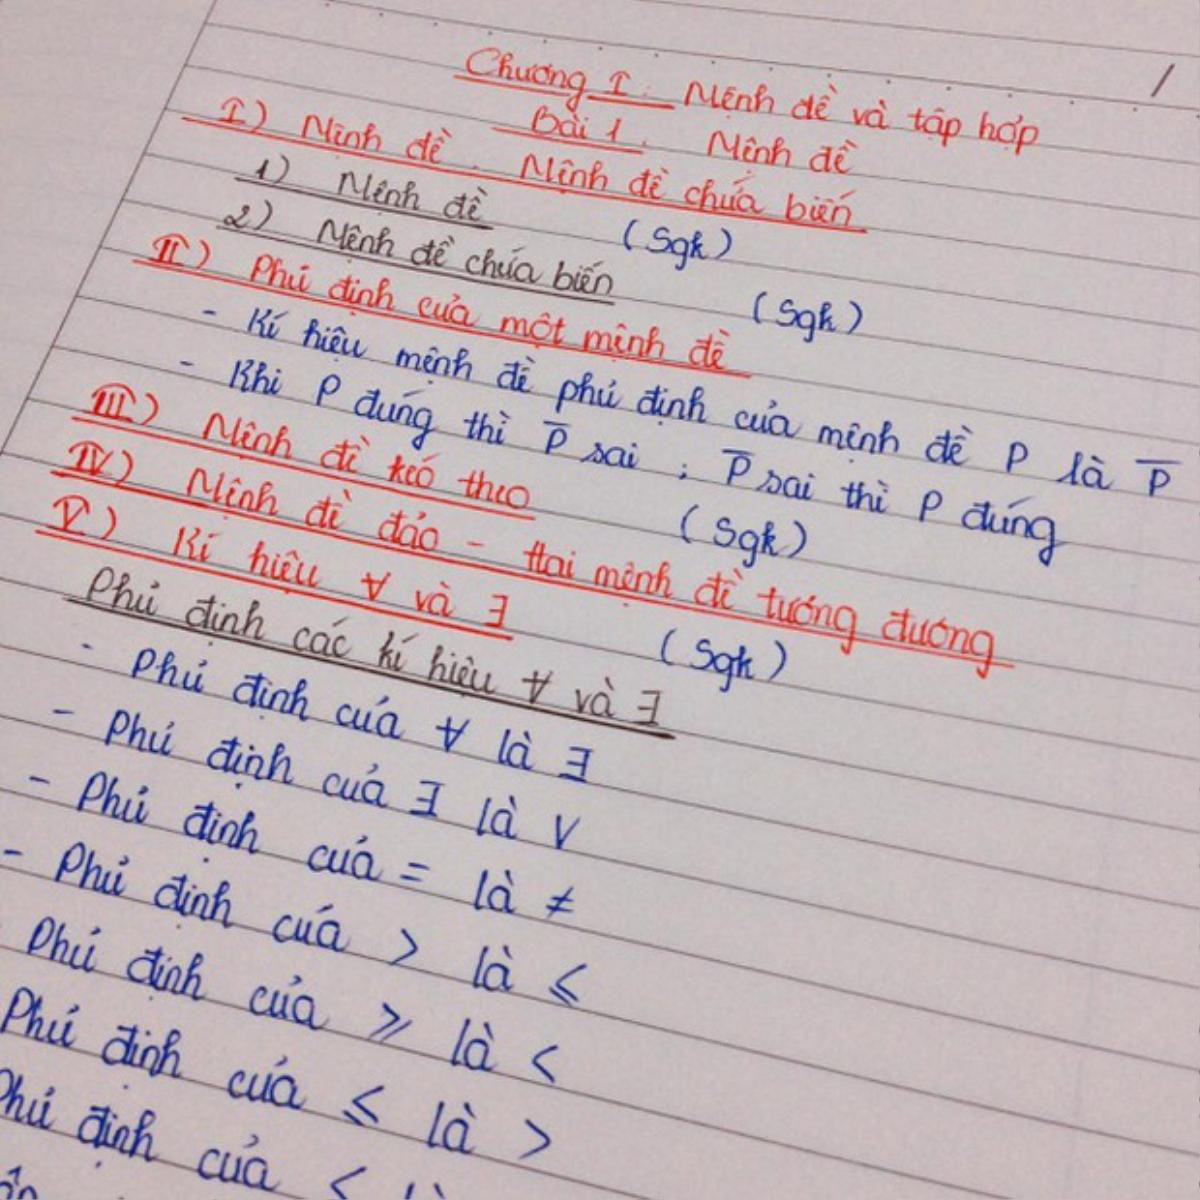 Chương I : Mệnh đề và tập hợp
Bài 1 : Mệnh đề
I) Mệnh đề . Mệnh đề chứa biến
1) Mệnh đề (Sgk)
2) Mệnh đề chứa biến (Sgk)
II) Phủ định của một mệnh đề
- Kí hiệu mệnh đề phủ định của mệnh đề P là P̅
- Khi P đúng thì P̅ sai ; P̅ sai thì P đúng
III) Mệnh đề kéo theo (Sgk)
IV) Mệnh đề đảo - Hai mệnh đề tương đương
V) Kí hiệu ∀ và ∃ (Sgk)
Phủ định các kí hiệu ∀ và ∃
- Phủ định của ∀ là ∃
- Phủ định của ∃ là ∀
- Phủ định của = là ≠
- Phủ định của > là ≤
Phủ định của ≥ là <
Phủ định của ≤ là >
Phủ định của < là